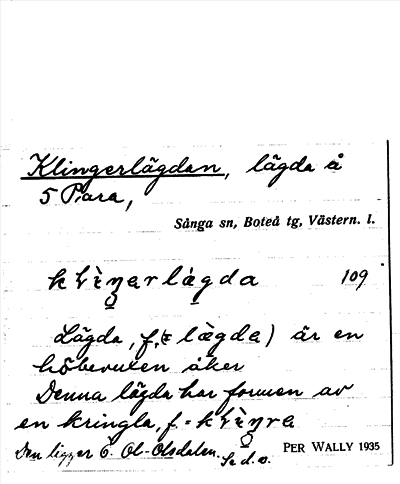 Klingerlägdan, lägda å
5 Para,
Sånga sn, Boteå tg, Västern. l.
109
Lägda, f. (= lägda) är en
höbevuxen åker
Denna lägda har formen av
en kringla, f. =
Den ligger Ö. Ol-Olsdalen. Se d.o.
PER WALLY 1935